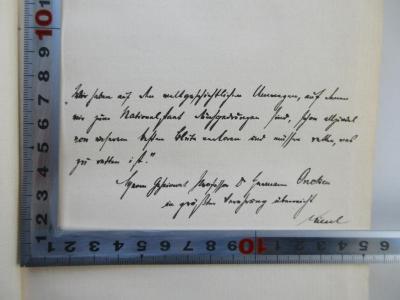 "Wir haben auf den weltgeschichtlichen Umwegen, auf denen
wir zum Nationalstaat durchgedrungen sind, schon allzuviel
von unserem besten Blute verloren und müssen retten, was
zu retten ist."
Herrn Geheimrat Professor D Hermann Oncken
in größter Verehrung überreicht
10 9 8 7 6 5 4 3 2 1
3 2 1 1 2 3 4 5 6 7 8 9 10 1 2 3 4 5 6